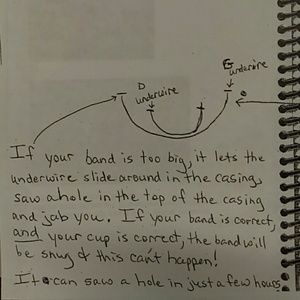 D
underwire
G
underwire
If your band is too big, it lets the
underwire slide around in the casing,
saw a hole in the top of the casing
and jab you. If your band is correct,
and your cup is correct, the band will
be snug & this can't happen!
It can saw a hole in just a few hours